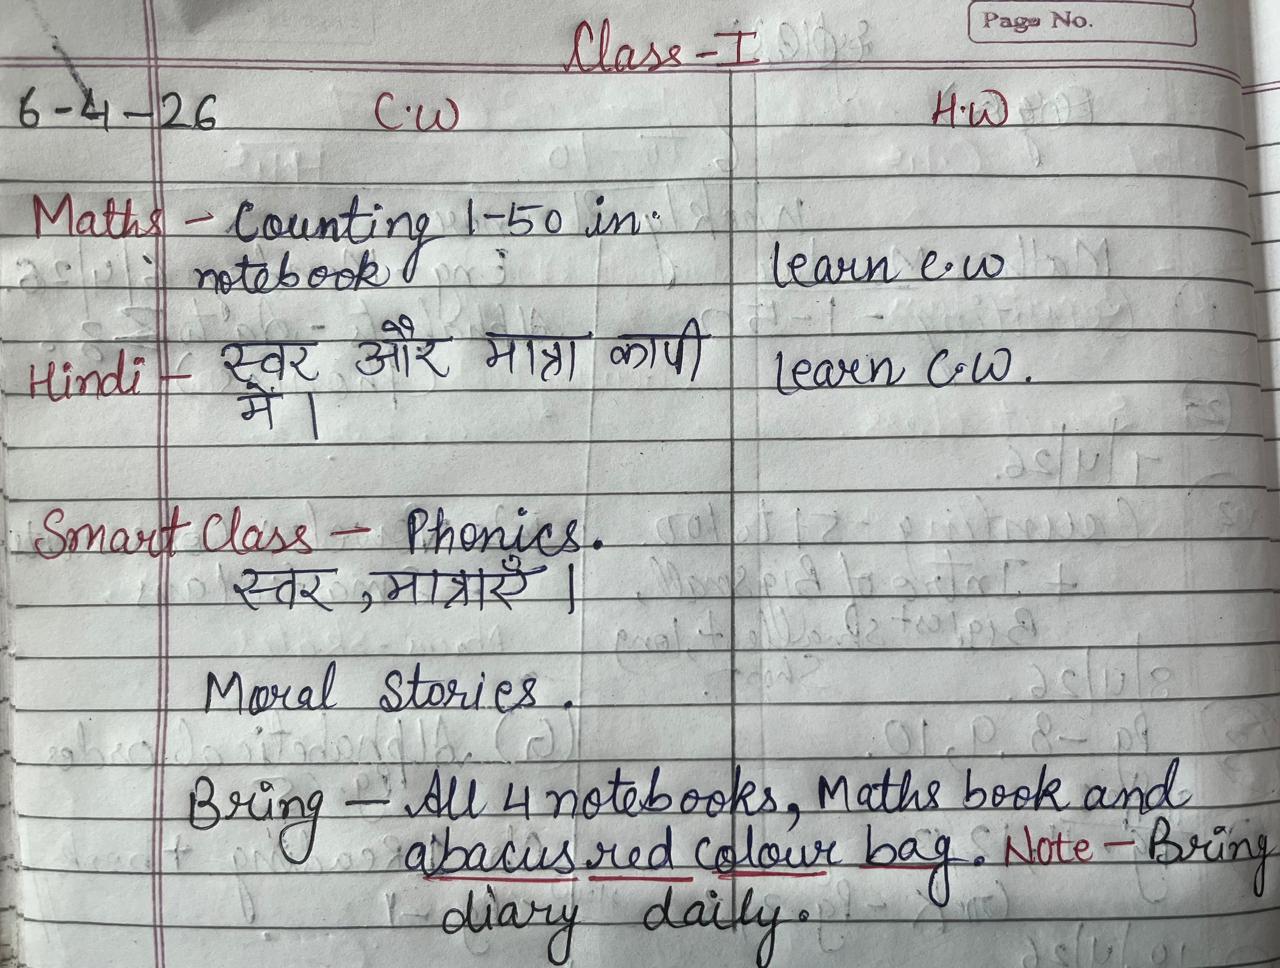 Page No.
Class-I
6-4-26 C.W H.W
Maths - Counting 1-50 in
notebook learn c.w
Hindi - स्वर और मात्रा कापी learn C.W.
में।
Smart Class - Phonics.
स्वर, मात्राएँ।
Moral Stories.
Bring - All 4 notebooks, Maths book and
abacus red colour bag. Note - Bring
diary daily.